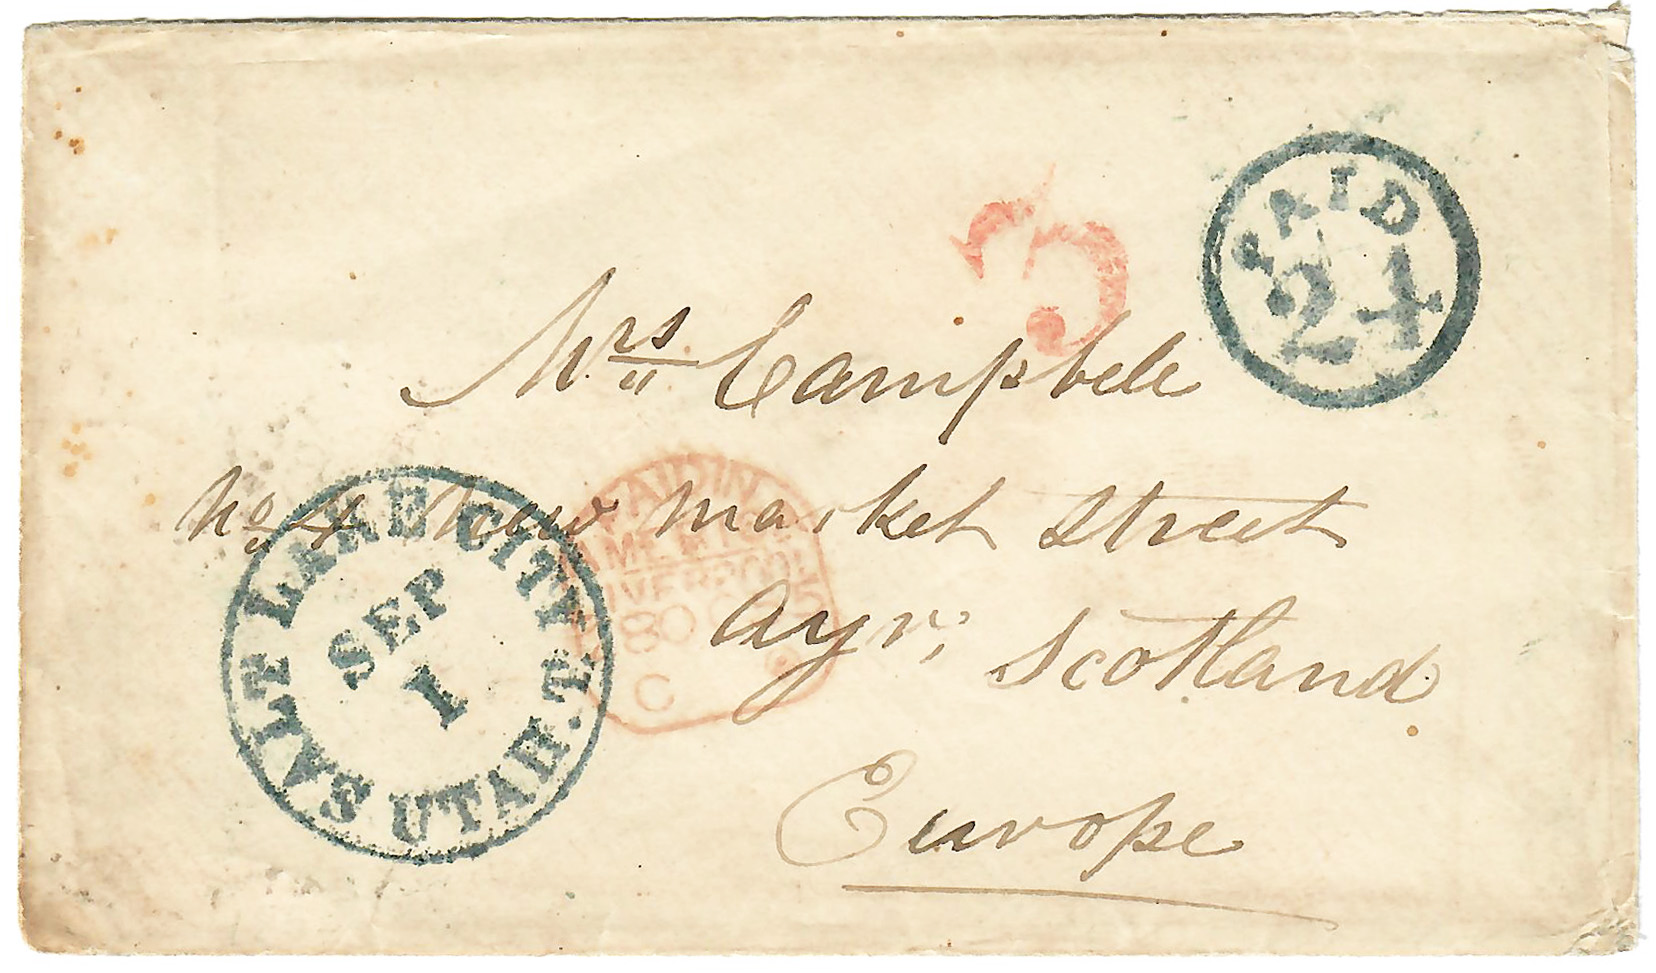 PAID
24
3
Mrs. Campbele
No. 4 New market Street
Ayr, Scotland
Europe
SALT LAKE CITY UTAH.T.
SEP
1
PAID IN
LIVERPOOL
C